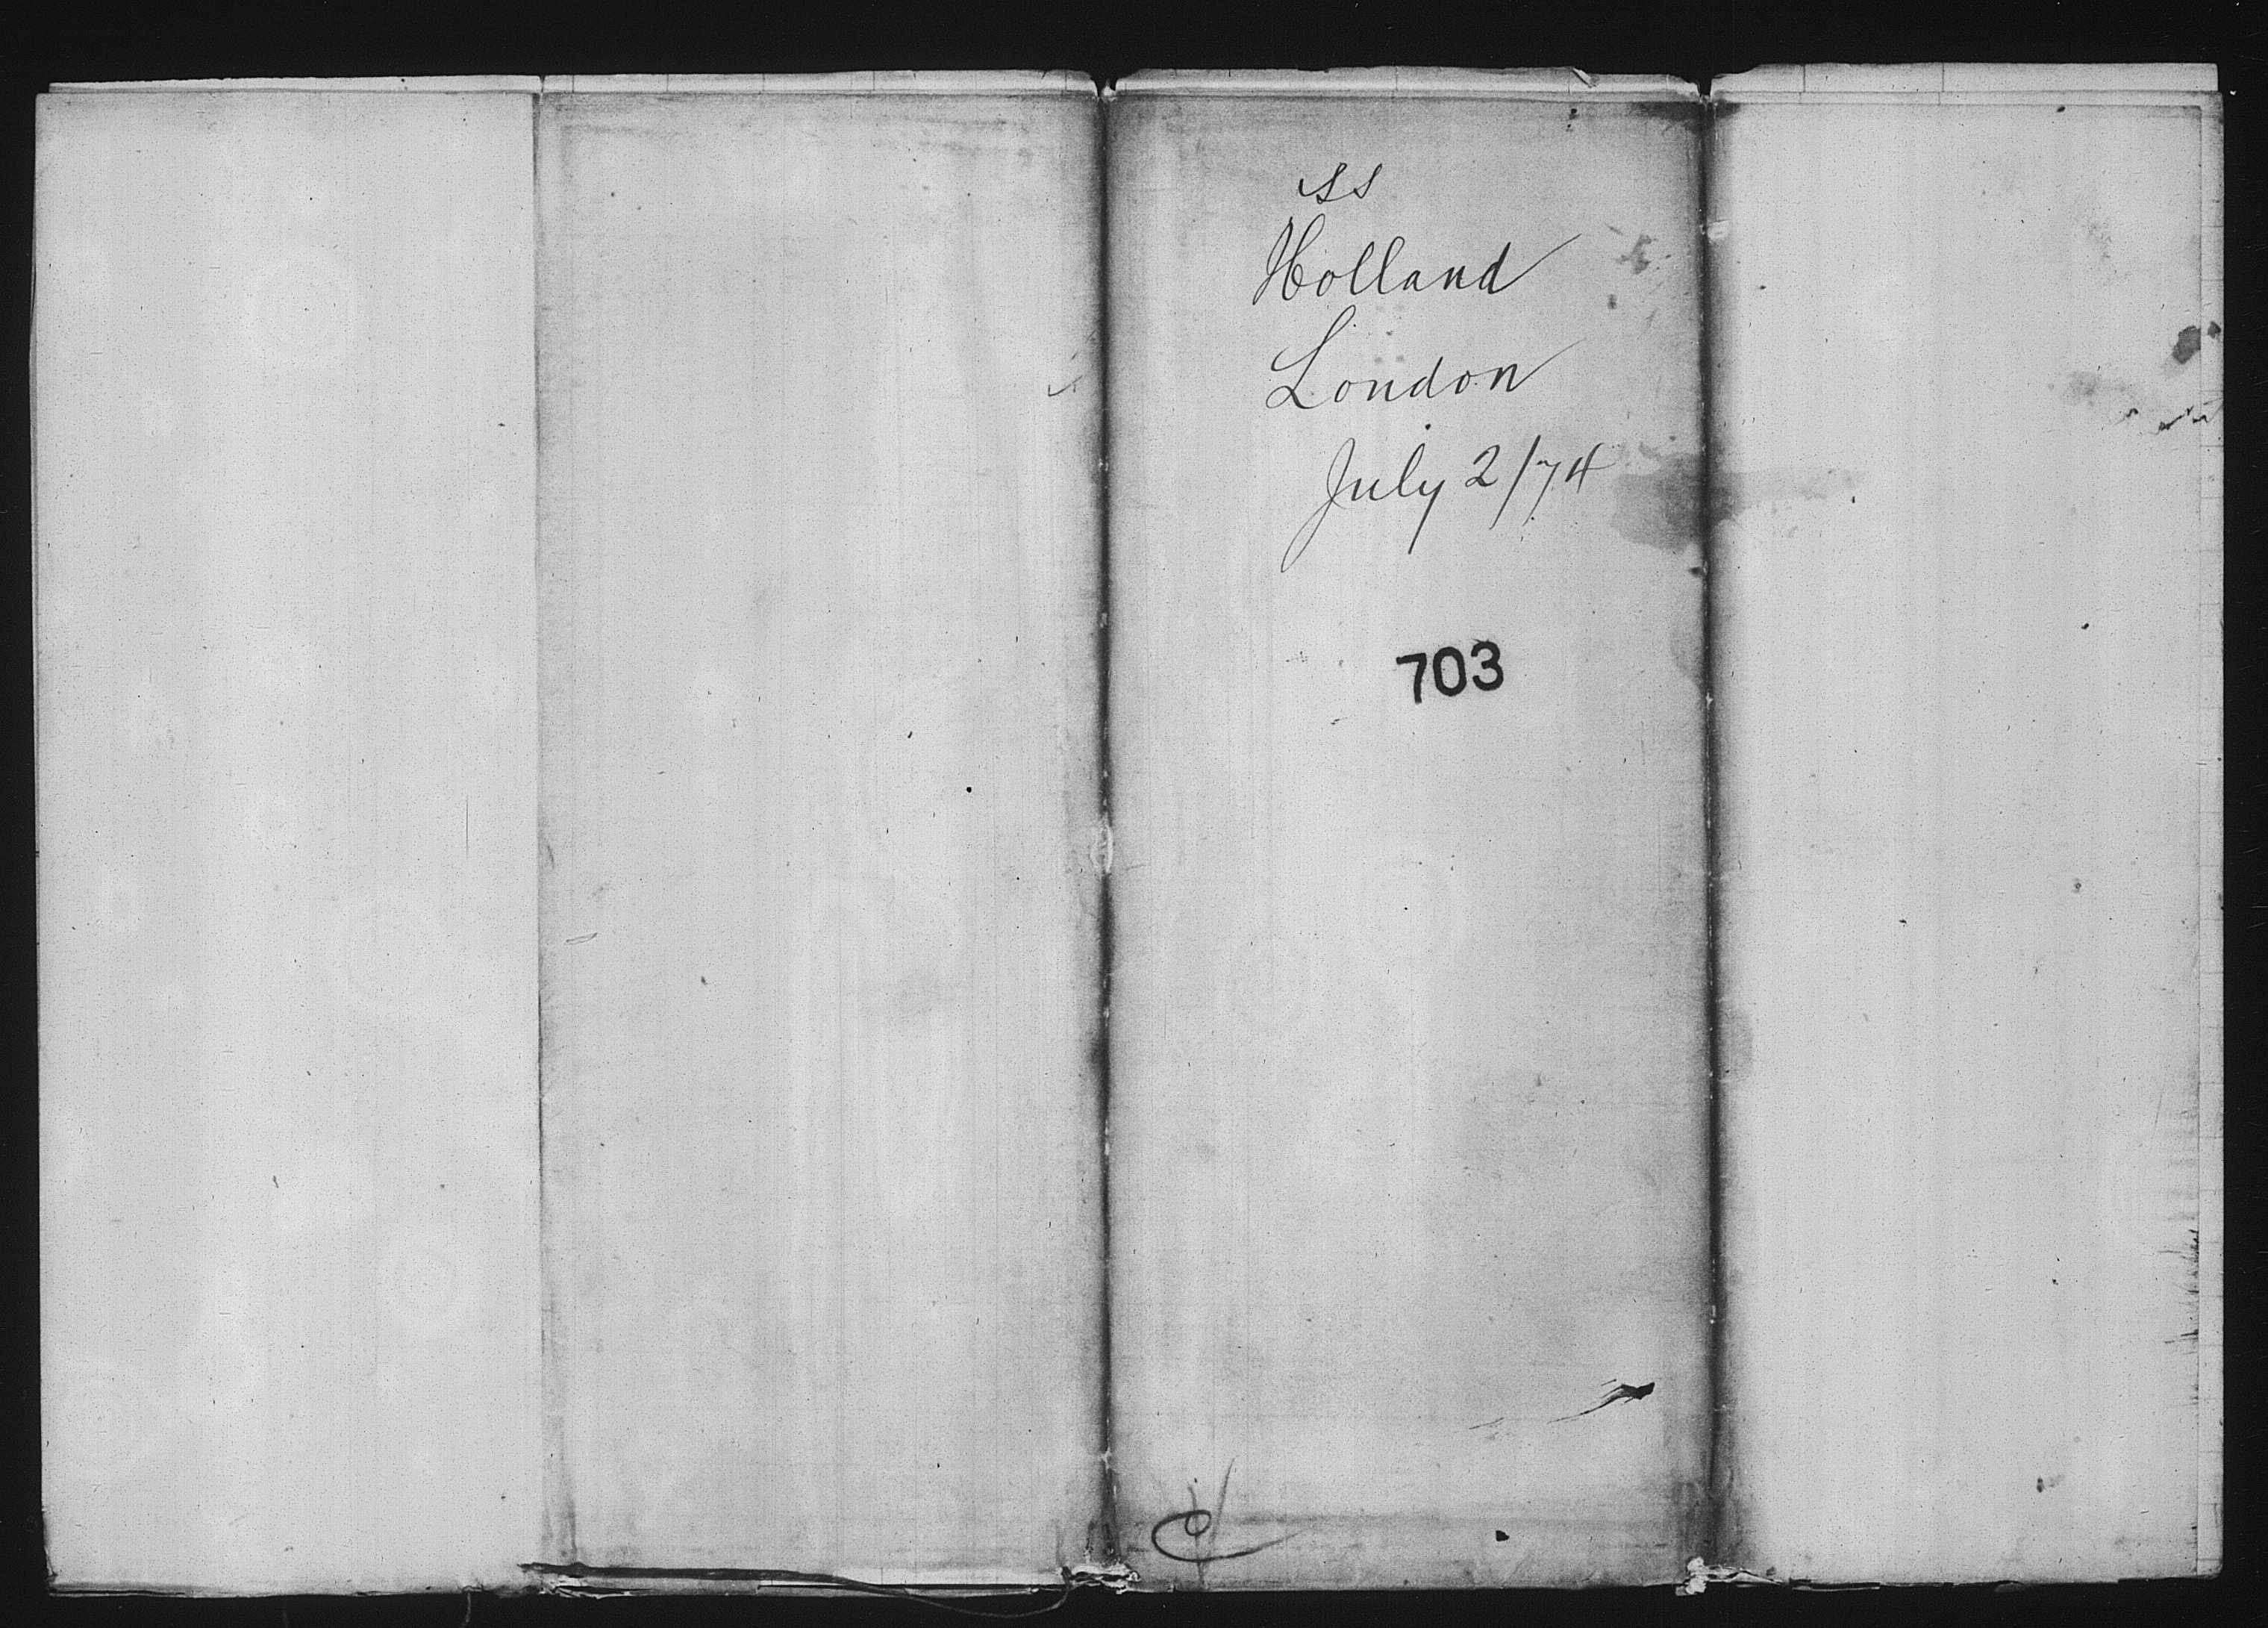 SS
Holland
London
July 2/74
703
C